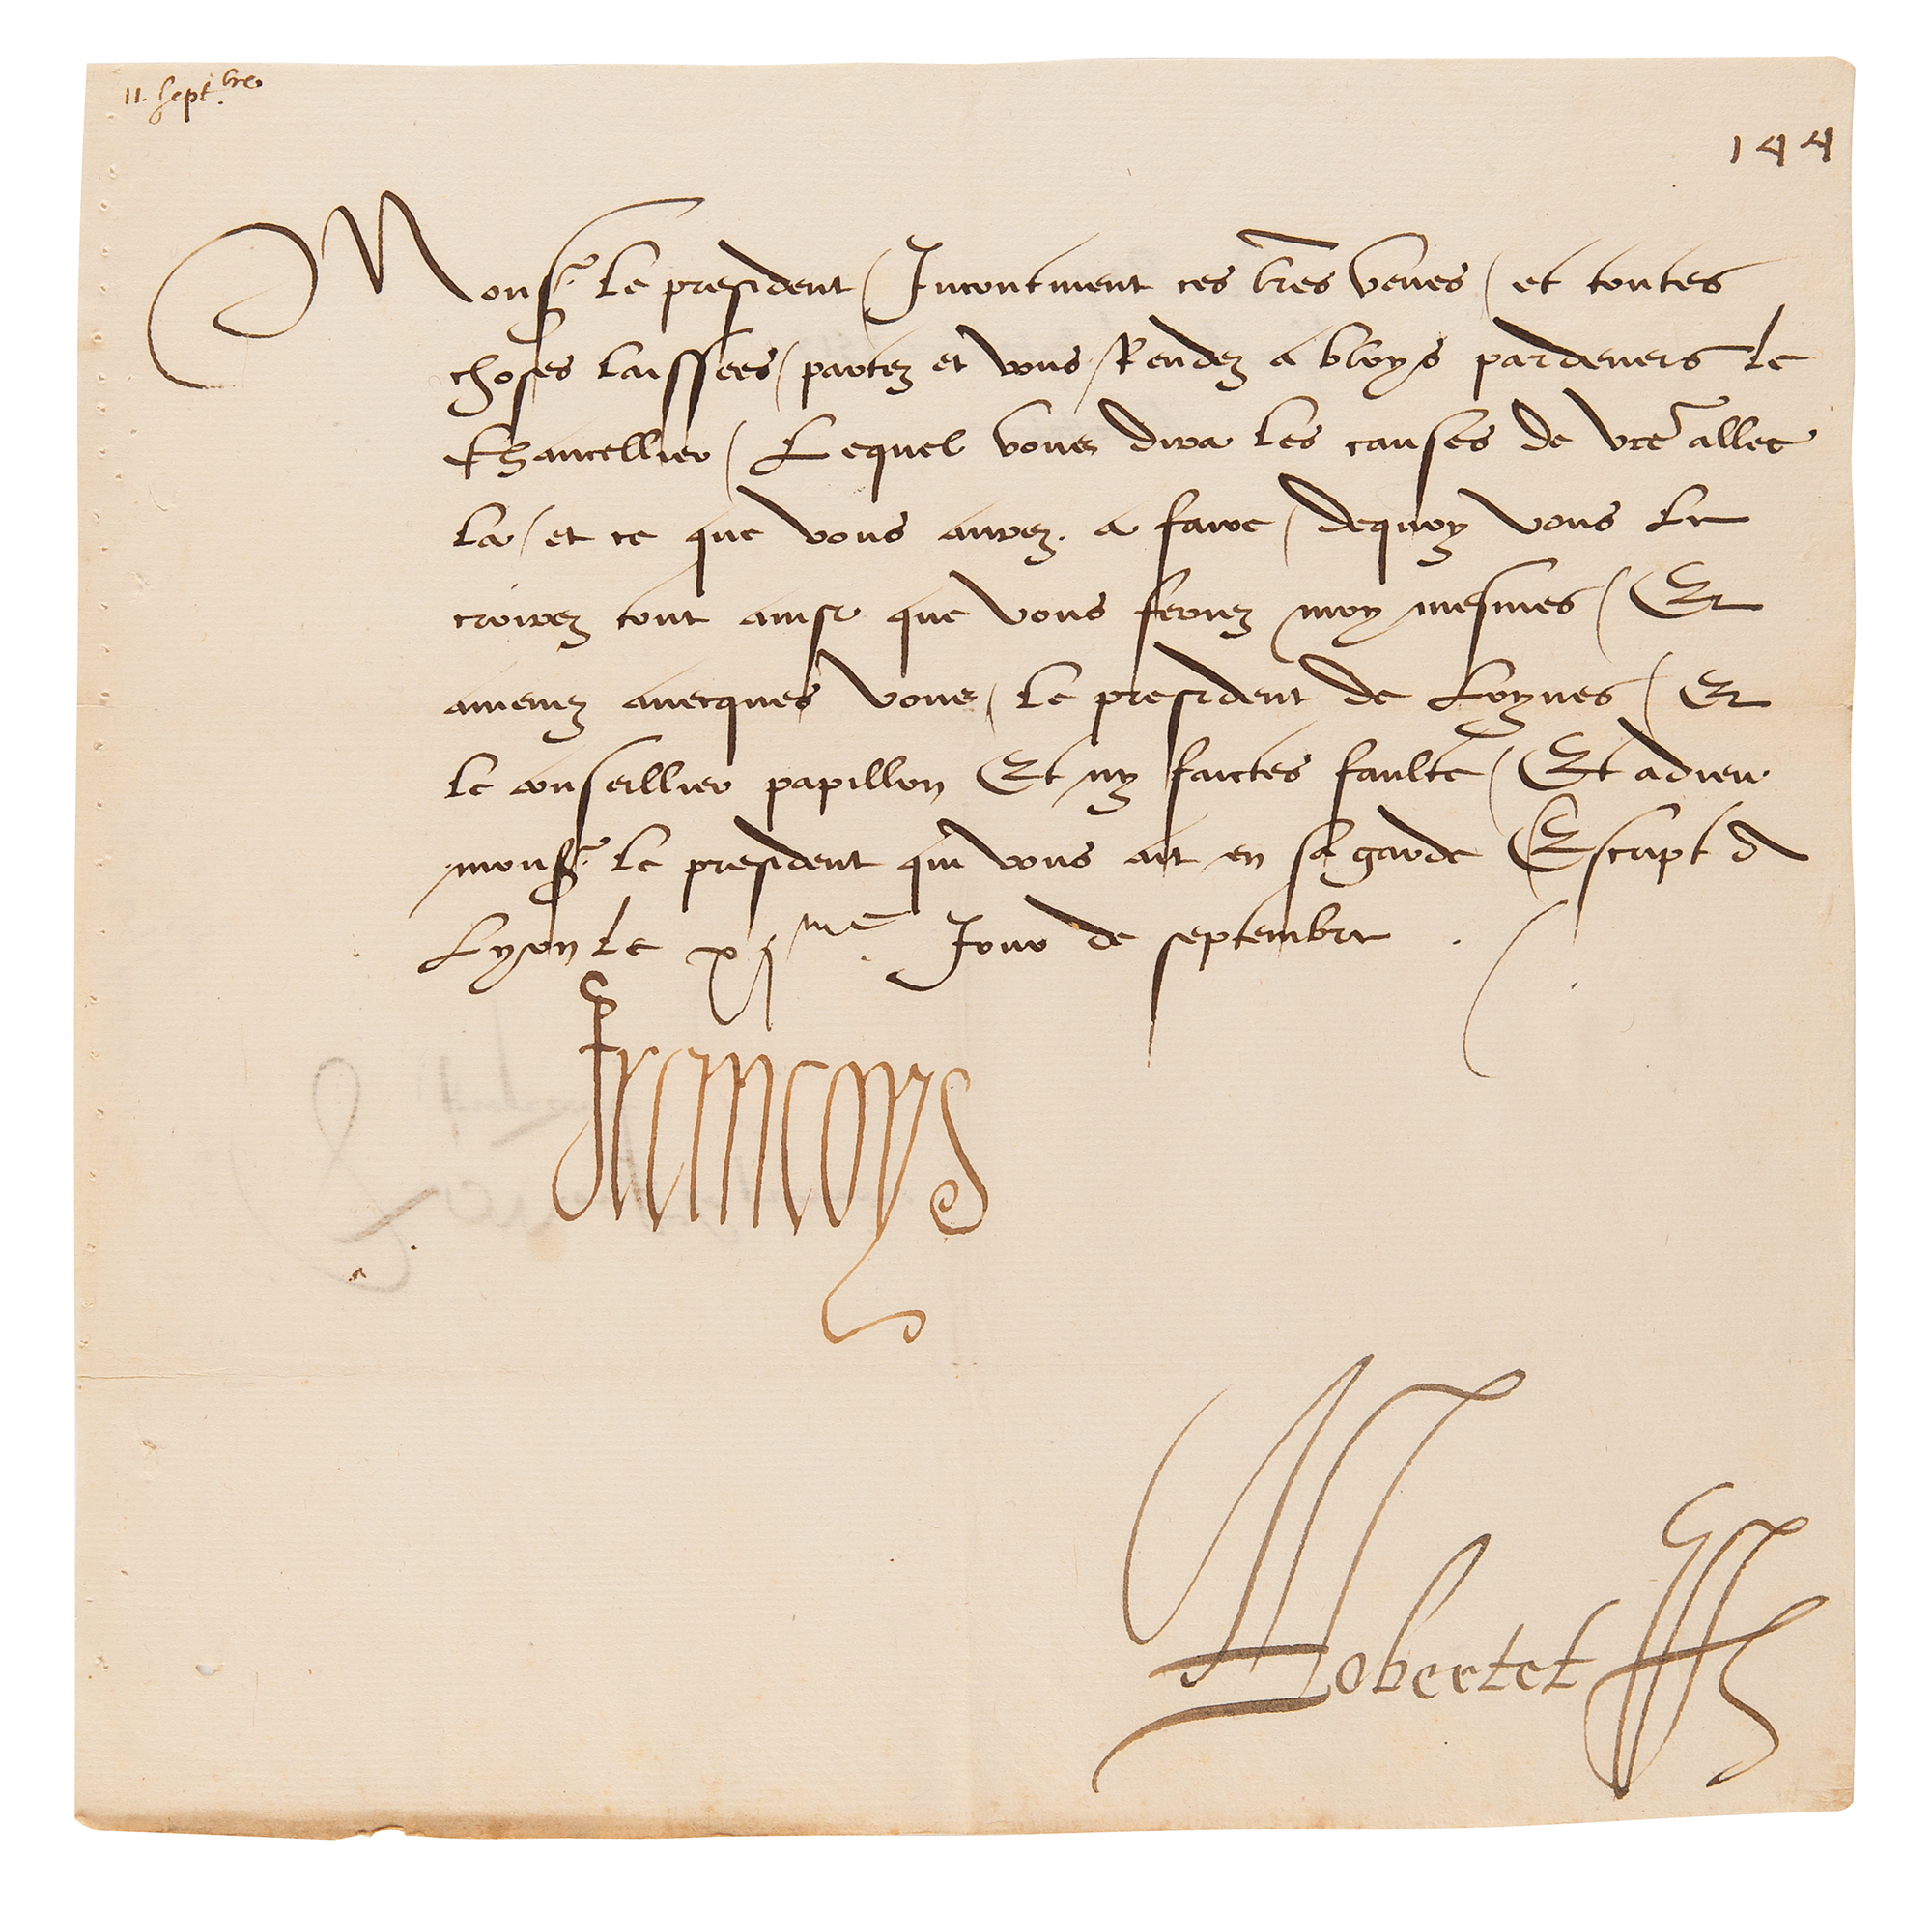 11. sept.bre
144
Monsr. le president / Incontinent ces lr̃es veues / et toutes
choses laissees / partez et vous Rendez a bloys pardevers le
Chancellier / Lequel vous dira les causes de vr̃e allee
la / et ce que vous aurez. a faire / dequoy vous le
croirez tout ainsi que vous feriez moy mesmes / Et
amenez avecques vous / le president de Loynes / Et
le conseillier papillon Et ny faictes faulte / Et adieu
monsr. le president qui vous ait en sa garde Escript a
Lyon le xjme Jour de septembre .
Francoys
Robertet